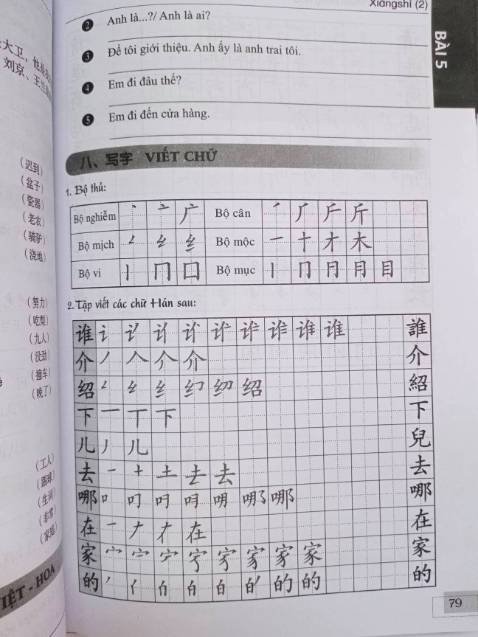 Xiàngshí (2)
BÀI 5
2 Anh là...?/ Anh là ai?
3 Để tôi giới thiệu. Anh ấy là anh trai tôi.
4 Em đi đâu thế?
5 Em đi đến cửa hàng.
八、写字 VIẾT CHỮ
1. Bộ thủ:
Bộ nghiễm 丶 亠 广 Bộ cân 丿 厂 斤
Bộ mịch 纟 Bộ mộc 一 十 才 木
Bộ vi 丨 冂 囗 Bộ mục 丨 冂 日 月 目
2. Tập viết các chữ Hán sau:
谁 讠 谁 誰
介 丿 人 介 介
绍 纟 绍 紹
下 一 丅 下 下
儿 丿 儿 兒
去 一 十 土 去 去 去
哪 口 叮 明 哪 哪
在 一 ナ 在 在
家 宀 家 家 家
的 丿 亻 白 白 白 的 的 的
大卫
刘京、王
(迟到)
(盆子)
(瓷器)
(老农)
(骑驴)
(浇地)
(努力)
(吃梨)
(九人)
(没劲)
(撞车)
(晚了)
(工人)
(圆球)
(生词)
(非常)
(家庭)
IỆT - HOA
79